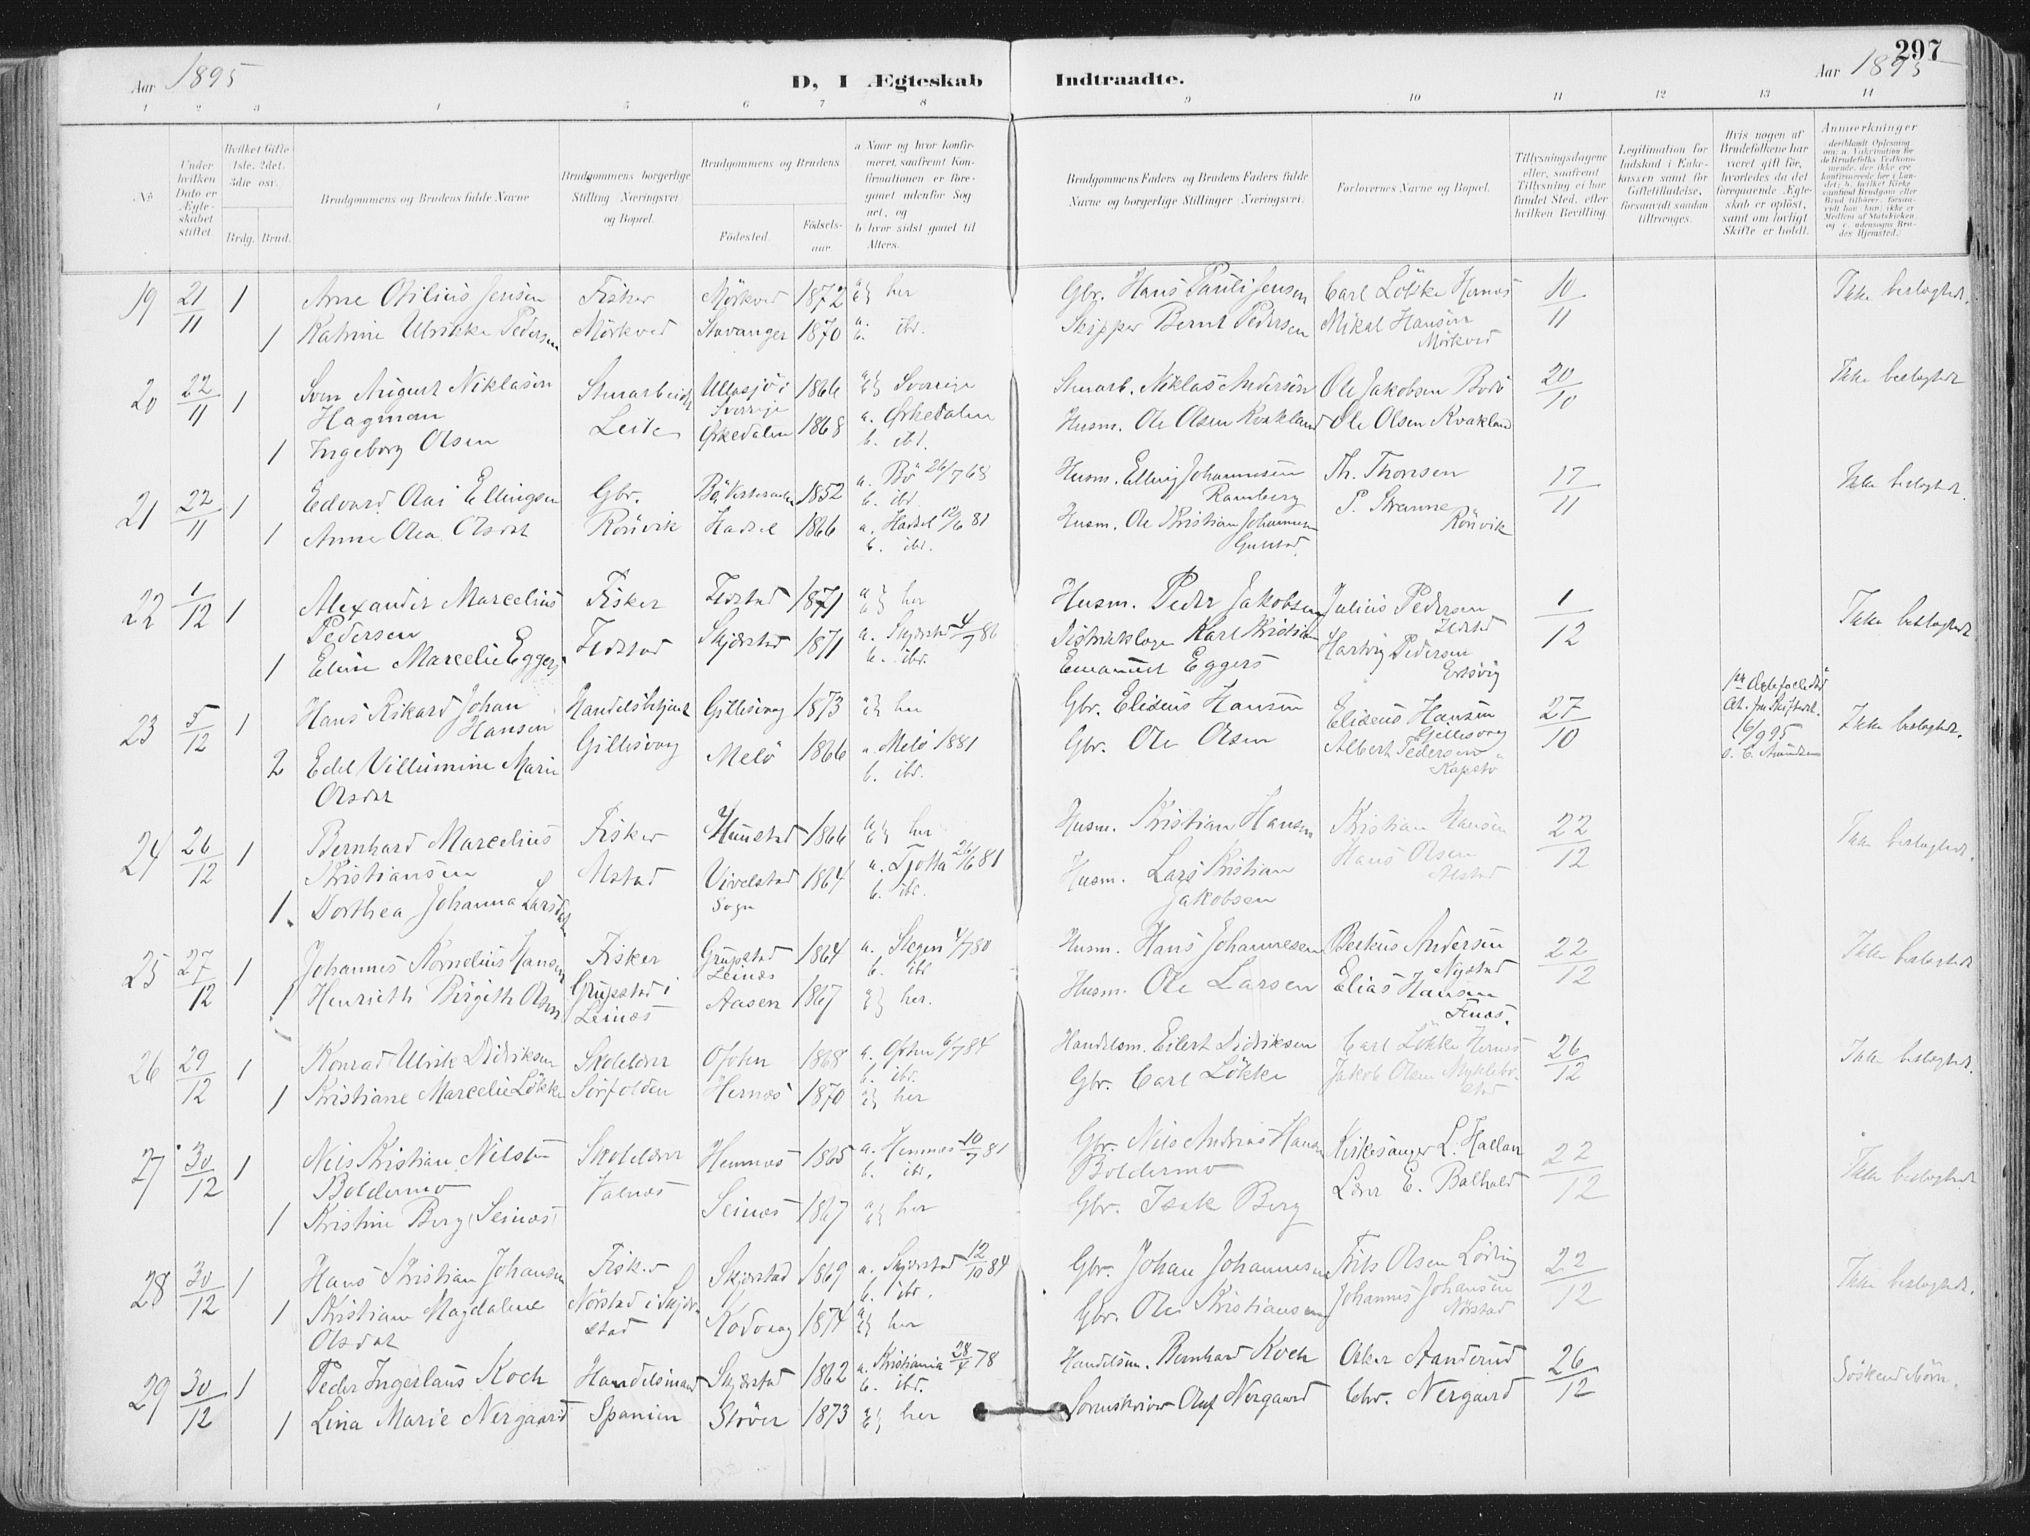 297
Aar 1895 D, I Ægteskab Indtraadte. Aar 1895
1 2 3 4 5 6 7 8 9 10 11 12 13 14
No.
Under hvilken Dato er Ægteskabet stiftet
Hvilket Gifte 1ste, 2det, 3die osv.
Brdg. Brud.
Brudgommens og Brudens fulde Navne
Brudgommens borgerlige Stilling (Næringsvei) og Bopæl.
Brudgommens og Brudens
Fødested. Fødselsaar.
a Naar og hvor konfirmeret, saafremt Konfirmationen er foregaaet udenfor Sognet, og
b hvor sidst gaaet til Alters.
Brudgommens Faders og Brudens Faders fulde Navne og borgerlige Stillinger (Næringsvei).
Forlovernes Navne og Bopæl.
Tillysningsdagene eller, saafremt Tillysning ei har fundet Sted, efter hvilken Bevilling.
Legitimation for Indskud i Enkekassen samt for Giftetilladelse, forsaavidt saadan tiltrænges.
Hvis nogen af Brudefolkene har været gift før, hvorledes da det foregaaende Ægteskab er opløst, samt om lovligt Skifte er holdt.
Anmærkninger
19 21/11 1 Arne Otilius Jensen Fisker Mörkved 1872 a b} her Gbr. Hans Pauli Jensen Carl Lökke Hernæs 10/11 Ikke beslægtede.
1 Katrine Ulrikke Pedersen Mörkved Stavanger 1870 a. b. ibd. Skipper Bernt Pedersen Mikal Hansen Mörkved
20 22/11 1 Sven August Niklasen Hagman Stenarbeider Ullasjö i Sverige 1866 a b} Sverige Stenarb. Niklas Andersen Ole Jakobsen Bodö 20/10 Ikke beslægtede
1 Ingeborg Olsen Leite Orkedalen 1868 a. Orkedalen b. ibd. Husm. Ole Olsen Kvakland Ole Olsen Kvakland
21 22/11 1 Edvard Olai Ellingsen Gbr. Bö Vesteraalen 1852 a. Bö 26/7 68 b. ibd Husm. Elling Johannesen Ramberg Th. Thonsen 17/11 Ikke beslægtede.
1 Anne Olea Olsdat Rönvik Hadsel 1866 a. Hadsel 12/6 81 b. ibd. Husm. Ole Kristian Johannesen P. Strenne Rönvik
22 1/12 1 Alexander Marcelius Pedersen Fisker Fedstad 1871 a b} her Husm. Peder Jakobsen Julius Pedersen 1/12 Ikke beslægtede.
1 Eline Marcelie Eggers Fedstad Skjerstad 1871 a. Skjerstad 4/7 86 b. ibd. Distriktslæge Karl Kristian Emanuel Eggers Hartvig Pedersen
23 5/12 1 Hans Rikard Johan Hansen Handelsbetjent Gillesvaag 1873 a b} her Gbr. Eliseus Hansen Eliseus Hansen Gillesvaag 27/10 Ikke beslægtede.
2 Edel Villumine Marie Olsdat Gillesvaag Melö 1866 a. Melö 1881 b. ibd. Gbr. Ole Olsen Albert Pedersen
24 26/12 1 Bernhard Marcelius Kristiansen Fisker Hunstad 1866 a b} her Husm. Kristian Hansen Kristian Hansen 22/12 Ikke beslægtede.
1 Dorthea Johanna Larsdat Alstad Vivelstad Sogn 1864 a. Tjötta 26/6 81 b. ibd. Husm. Lars Kristian Jakobsen Hans Olsen Alstad
25 27/12 1 Johannes Kornelius Hansen Fisker Grupstad Leinæs 1864 a. Stegen 4/7 80 b. ibd Husm. Hans Johannesen Berkus Andersen Nystad 22/12 Ikke beslægtede
1 Henrieth Birgith Olsen Grupstad i Leinæs Aasen 1867 a b} her. Husm. Ole Larsen Elias Hansen
26 29/12 1 Konrad Ulrik Didriksen Skolelærer Ofoten 1868 a. Ofoten 6/7 84 b. ibd. Handelsm. Eilert Didriksen Carl Lökke Hernæs 26/12 Ikke beslægtede.
1 Kristiane Marcelie Lökke Sörfolden Hernæs 1870 a b} her Gbr. Carl Lökke Jakob Olsen Myklebostad
27 30/12 1 Nils Kristian Nilsen Boldermo Skolelærer Hemnæs 1865 a. Hemnæs 10/7 81 b. ibd. Gbr. Nils Andrias Hansen Boldermo Kirkesanger L. Hallan 22/12 Ikke beslægtede
1 Kristine Berg (Seines) Valnæs Seines 1867 a b} her Gbr. Isak Berg Lærer E. Balhald
28 30/12 1 Hans Kristian Johansen Fisker Skjerstad 1869 a. Skjerstad 12/10 84 b. ibd. Gbr. Johan Johannesen Frits Olsen Löding 22/12 Ikke beslægtede.
1 Kristiane Magdalene Olsdat Nörstad i Skjerstad Kodvaag 1874 a b} her Gbr. Ole Kristiansen Johannes Johansen Nörstad
29 30/12 1 Peder Ingerlaus Koch Handelsmand Skjerstad 1862 a. Kristiania 28/4 78 b. ibd. Handelsm. Bernhard Koch Oskar Aanderud 26/12 Söskendebörn.
1 Lina Marie Nergaard Spanien Stöver 1873 a b} her Sorenskriver Oluf Nergaard Chr. Nergaard